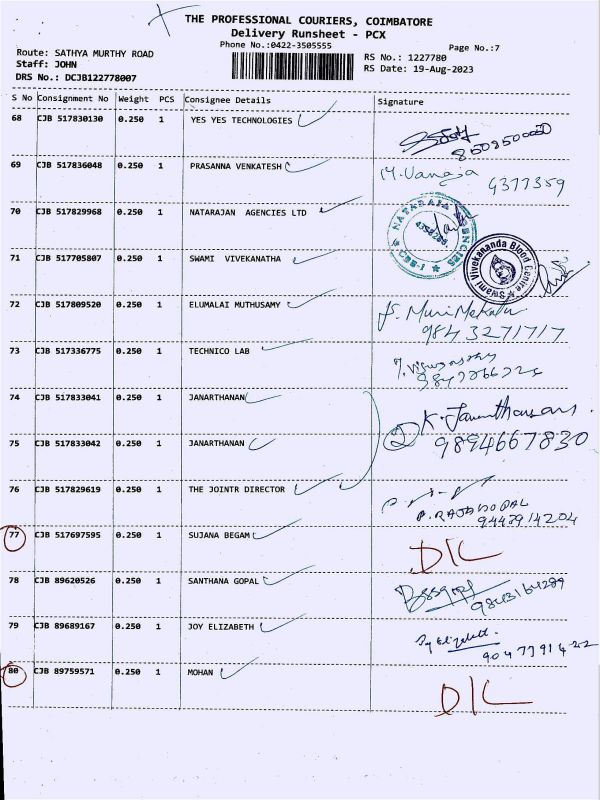 THE PROFESSIONAL COURIERS, COIMBATORE
Delivery Runsheet - PCX
Phone No.:0422-3505555
Page No.:7
Route: SATHYA MURTHY ROAD
RS No.: 1227780
Staff: JOHN
RS Date: 19-Aug-2023
DRS No.: DCJB122778007
S No Consignment No Weight PCS Consignee Details Signature
68 CJB 517830130 0.250 1 YES YES TECHNOLOGIES
69 CJB 517836048 0.250 1 PRASANNA VENKATESH M. Vanaja
4377359
70 CJB 517829968 0.250 1 NATARAJAN AGENCIES LTD
71 CJB 517705807 0.250 1 SWAMI VIVEKANATHA Swami Vivekananda Blood Centre
72 CJB 517809520 0.250 1 ELUMALAI MUTHUSAMY
9843271717
73 CJB 517336775 0.250 1 TECHNICO LAB
74 CJB 517833041 0.250 1 JANARTHANAN
75 CJB 517833042 0.250 1 JANARTHANAN 2 9894667830
76 CJB 517829619 0.250 1 THE JOINTR DIRECTOR
P. RAJAGOPAL
77 CJB 517697595 0.250 1 SUJANA BEGAM D/L
78 CJB 89620526 0.250 1 SANTHANA GOPAL
79 CJB 89689167 0.250 1 JOY ELIZABETH
80 CJB 89759571 0.250 1 MOHAN D/L